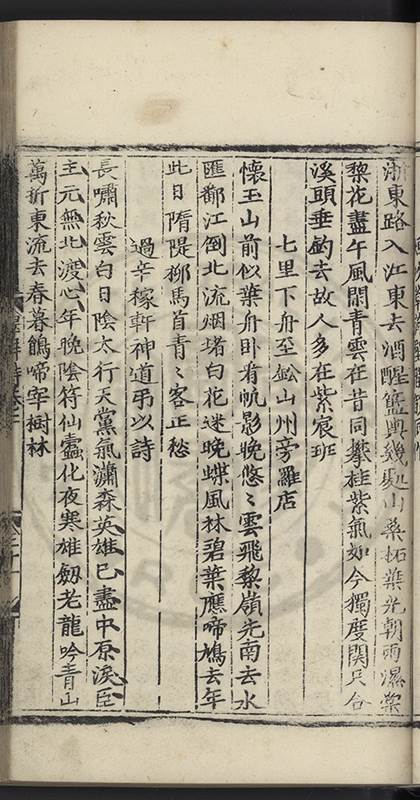 浙東路入江東去酒醒籃輿幾點山藥拓葉光朝雨濕棠
黎花盡午風閑青雲在昔同攀桂紫氣如今獨度関只合
溪頭垂釣去故人多在紫宸班
七里下舟至鈆山州旁羅店
懐玉山前似葉舟卧看帆影晚悠〻雲飛黎嶺先南去水
匯鄱江倒北流烟堵白花迷晚蝶風林碧葉應啼鳩去年
此日隋隄栁馬首青〻客正愁
過辛稼軒神道弔以詩
長嘯秋雲白日陰太行天黨氣瀟森英雄已盡中原淚臣
主元無北渡心年晚陰符仙蠹化夜寒雄劒老龍吟青山
萬折東流去春暮鵑啼宰樹林